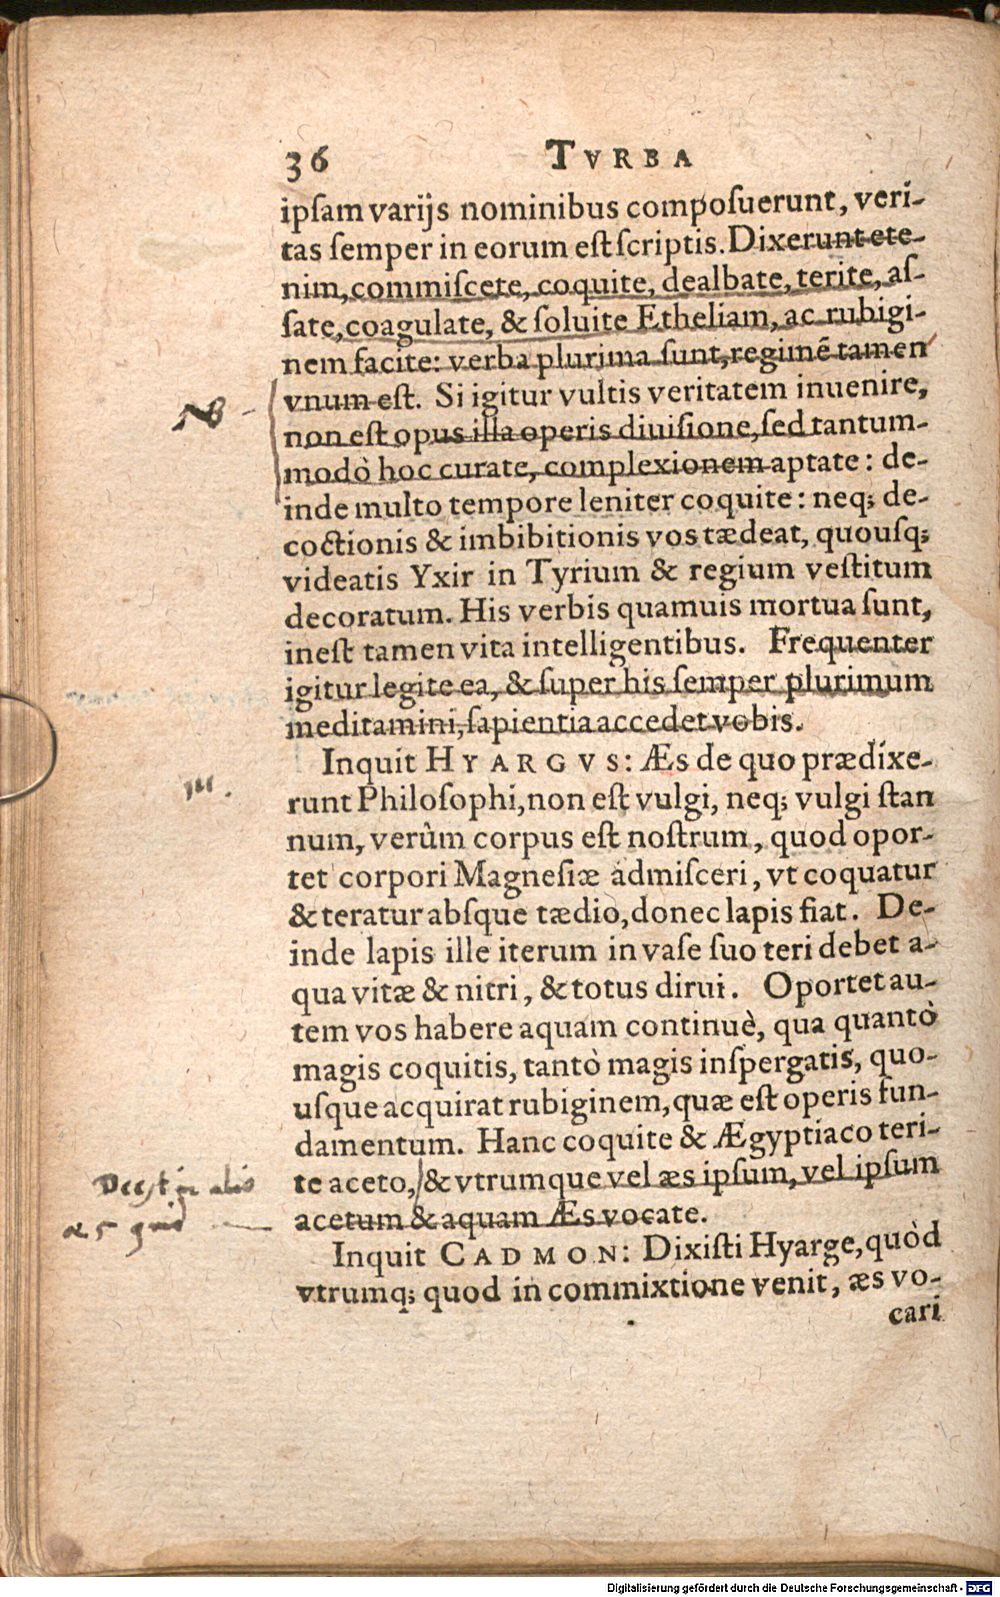 36 TVRBA
ipſam varijs nominibus compoſuerunt, veri-
tas ſemper in eorum eſt ſcriptis. Dixerunt ete-
nim, commiſcete, coquite, dealbate, terite, aſ-
ſate, coagulate, & ſoluite Etheliam, ac rubigi-
nem facite: verba plurima ſunt, regimē tamen
vnum eſt. Si igitur vultis veritatem inuenire,
NB
non eſt opus illa operis diuiſione, ſed tantum-
modò hoc curate, complexionem aptate: de-
inde multo tempore leniter coquite: neq; de-
coctionis & imbibitionis vos tædeat, quouſq;
videatis Yxir in Tyrium & regium veſtitum
decoratum. His verbis quamuis mortua ſunt,
ineſt tamen vita intelligentibus. Frequenter
igitur legite ea, & ſuper his ſemper plurimum
meditamini, ſapientia accedet vobis.
Inquit HYARGVS: Æs de quo prædixe-
runt Philoſophi, non eſt vulgi, neq; vulgi ſtan
num, verùm corpus eſt noſtrum, quod opor-
tet corpori Magneſiæ admiſceri, vt coquatur
& teratur abſque tædio, donec lapis fiat. De-
inde lapis ille iterum in vaſe ſuo teri debet a-
qua vitæ & nitri, & totus dirui. Oportet au-
tem vos habere aquam continuè, qua quantò
magis coquitis, tantò magis inſpergatis, quo-
uſque acquirat rubiginem, quæ eſt operis fun-
damentum. Hanc coquite & Ægyptiaco teri-
te aceto, & vtrumque vel æs ipſum, vel ipſum
Deest in alio
acetum & aquam Æs vocate.
Inquit CADMON: Dixiſti Hyarge, quòd
vtrumq; quod in commixtione venit, æs vo-
cari
Digitalisierung gefördert durch die Deutsche Forschungsgemeinschaft - DFG